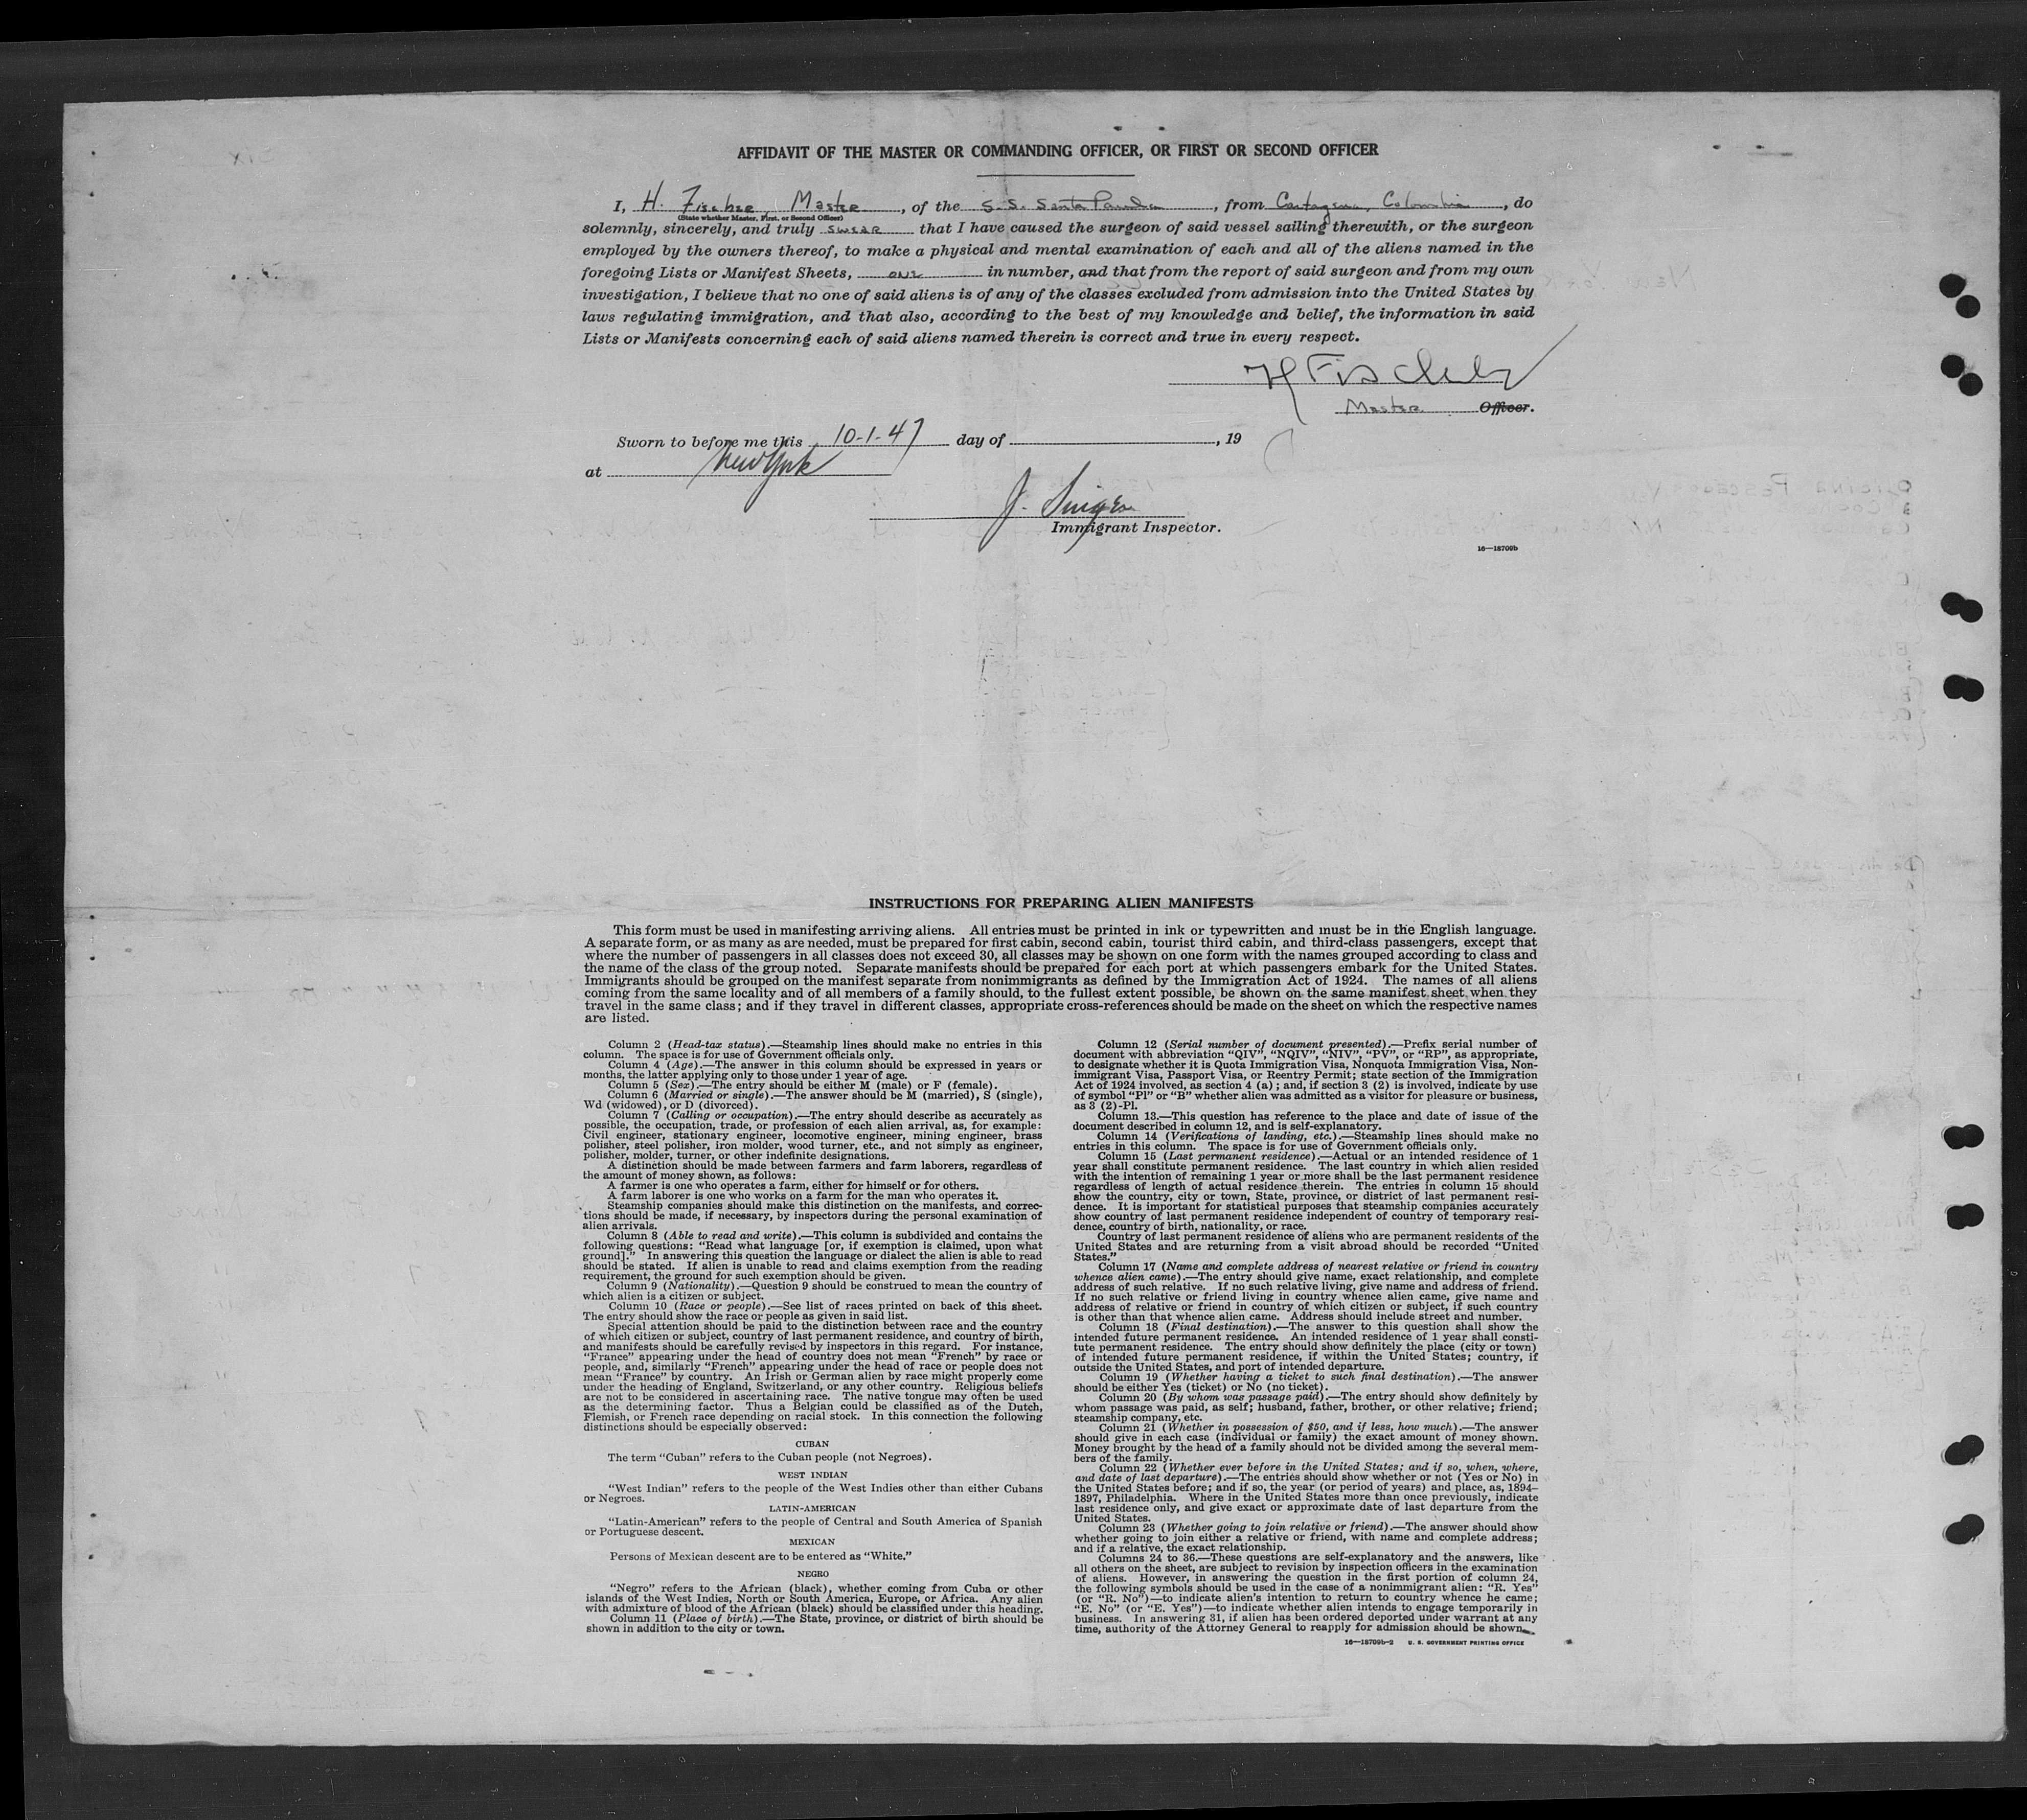 AFFIDAVIT OF THE MASTER OR COMMANDING OFFICER, OR FIRST OR SECOND OFFICER
I, H. Fischer, Master, of the S.S. Santa Paula, from Cartagena, Colombia, do
(State whether Master, First, or Second Officer)
solemnly, sincerely, and truly swear that I have caused the surgeon of said vessel sailing therewith, or the surgeon
employed by the owners thereof, to make a physical and mental examination of each and all of the aliens named in the
foregoing Lists or Manifest Sheets, one in number, and that from the report of said surgeon and from my own
investigation, I believe that no one of said aliens is of any of the classes excluded from admission into the United States by
laws regulating immigration, and that also, according to the best of my knowledge and belief, the information in said
Lists or Manifests concerning each of said aliens named therein is correct and true in every respect.
H Fischer
Master Officer.
Sworn to before me this 10-1-47 day of , 19
at New York
J. Singer
Immigrant Inspector.
16—18709b
INSTRUCTIONS FOR PREPARING ALIEN MANIFESTS
This form must be used in manifesting arriving aliens. All entries must be printed in ink or typewritten and must be in the English language.
A separate form, or as many as are needed, must be prepared for first cabin, second cabin, tourist third cabin, and third-class passengers, except that
where the number of passengers in all classes does not exceed 30, all classes may be shown on one form with the names grouped according to class and
the name of the class of the group noted. Separate manifests should be prepared for each port at which passengers embark for the United States.
Immigrants should be grouped on the manifest separate from nonimmigrants as defined by the Immigration Act of 1924. The names of all aliens
coming from the same locality and of all members of a family should, to the fullest extent possible, be shown on the same manifest sheet when they
travel in the same class; and if they travel in different classes, appropriate cross-references should be made on the sheet on which the respective names
are listed.
Column 2 (Head-tax status).—Steamship lines should make no entries in this
column. The space is for use of Government officials only.
Column 4 (Age).—The answer in this column should be expressed in years or
months, the latter applying only to those under 1 year of age.
Column 5 (Sex).—The entry should be either M (male) or F (female).
Column 6 (Married or single).—The answer should be M (married), S (single),
Wd (widowed), or D (divorced).
Column 7 (Calling or occupation).—The entry should describe as accurately as
possible, the occupation, trade, or profession of each alien arrival, as, for example:
Civil engineer, stationary engineer, locomotive engineer, mining engineer, brass
polisher, steel polisher, iron molder, wood turner, etc., and not simply as engineer,
polisher, molder, turner, or other indefinite designations.
A distinction should be made between farmers and farm laborers, regardless of
the amount of money shown, as follows:
A farmer is one who operates a farm, either for himself or for others.
A farm laborer is one who works on a farm for the man who operates it.
Steamship companies should make this distinction on the manifests, and correc-
tions should be made, if necessary, by inspectors during the personal examination of
alien arrivals.
Column 8 (Able to read and write).—This column is subdivided and contains the
following questions: "Read what language [or, if exemption is claimed, upon what
ground]." In answering this question the language or dialect the alien is able to read
should be stated. If alien is unable to read and claims exemption from the reading
requirement, the ground for such exemption should be given.
Column 9 (Nationality).—Question 9 should be construed to mean the country of
which alien is a citizen or subject.
Column 10 (Race or people).—See list of races printed on back of this sheet.
The entry should show the race or people as given in said list.
Special attention should be paid to the distinction between race and the country
of which citizen or subject, country of last permanent residence, and country of birth,
and manifests should be carefully revised by inspectors in this regard. For instance,
"France" appearing under the head of country does not mean "French" by race or
people, and, similarly "French" appearing under the head of race or people does not
mean "France" by country. An Irish or German alien by race might properly come
under the heading of England, Switzerland, or any other country. Religious beliefs
are not to be considered in ascertaining race. The native tongue may often be used
as the determining factor. Thus a Belgian could be classified as of the Dutch,
Flemish, or French race depending on racial stock. In this connection the following
distinctions should be especially observed:
CUBAN
The term "Cuban" refers to the Cuban people (not Negroes).
WEST INDIAN
"West Indian" refers to the people of the West Indies other than either Cubans
or Negroes.
LATIN-AMERICAN
"Latin-American" refers to the people of Central and South America of Spanish
or Portuguese descent.
MEXICAN
Persons of Mexican descent are to be entered as "White."
NEGRO
"Negro" refers to the African (black), whether coming from Cuba or other
islands of the West Indies, North or South America, Europe, or Africa. Any alien
with admixture of blood of the African (black) should be classified under this heading.
Column 11 (Place of birth).—The State, province, or district of birth should be
shown in addition to the city or town.
Column 12 (Serial number of document presented).—Prefix serial number of
document with abbreviation "QIV", "NQIV", "NIV", "PV", or "RP", as appropriate,
to designate whether it is Quota Immigration Visa, Nonquota Immigration Visa, Non-
immigrant Visa, Passport Visa, or Reentry Permit; state section of the Immigration
Act of 1924 involved, as section 4 (a); and, if section 3 (2) is involved, indicate by use
of symbol "Pl" or "B" whether alien was admitted as a visitor for pleasure or business,
as 3 (2)-Pl.
Column 13.—This question has reference to the place and date of issue of the
document described in column 12, and is self-explanatory.
Column 14 (Verifications of landing, etc.).—Steamship lines should make no
entries in this column. The space is for use of Government officials only.
Column 15 (Last permanent residence).—Actual or an intended residence of 1
year shall constitute permanent residence. The last country in which alien resided
with the intention of remaining 1 year or more shall be the last permanent residence
regardless of length of actual residence therein. The entries in column 15 should
show the country, city or town, State, province, or district of last permanent resi-
dence. It is important for statistical purposes that steamship companies accurately
show country of last permanent residence independent of country of temporary resi-
dence, country of birth, nationality, or race.
Country of last permanent residence of aliens who are permanent residents of the
United States and are returning from a visit abroad should be recorded "United
States."
Column 17 (Name and complete address of nearest relative or friend in country
whence alien came).—The entry should give name, exact relationship, and complete
address of such relative. If no such relative living, give name and address of friend.
If no such relative or friend living in country whence alien came, give name and
address of relative or friend in country of which citizen or subject, if such country
is other than that whence alien came. Address should include street and number.
Column 18 (Final destination).—The answer to this question shall show the
intended future permanent residence. An intended residence of 1 year shall consti-
tute permanent residence. The entry should show definitely the place (city or town)
of intended future permanent residence, if within the United States; country, if
outside the United States, and port of intended departure.
Column 19 (Whether having a ticket to such final destination).—The answer
should be either Yes (ticket) or No (no ticket).
Column 20 (By whom was passage paid).—The entry should show definitely by
whom passage was paid, as self; husband, father, brother, or other relative; friend;
steamship company, etc.
Column 21 (Whether in possession of $50, and if less, how much).—The answer
should give in each case (individual or family) the exact amount of money shown.
Money brought by the head of a family should not be divided among the several mem-
bers of the family.
Column 22 (Whether ever before in the United States; and if so, when, where,
and date of last departure).—The entries should show whether or not (Yes or No) in
the United States before; and if so, the year (or period of years) and place, as, 1894–
1897, Philadelphia. Where in the United States more than once previously, indicate
last residence only, and give exact or approximate date of last departure from the
United States.
Column 23 (Whether going to join relative or friend).—The answer should show
whether going to join either a relative or friend, with name and complete address;
and if a relative, the exact relationship.
Columns 24 to 36.—These questions are self-explanatory and the answers, like
all others on the sheet, are subject to revision by inspection officers in the examination
of aliens. However, in answering the question in the first portion of column 24,
the following symbols should be used in the case of a nonimmigrant alien: "R. Yes"
(or "R. No")—to indicate alien's intention to return to country whence he came;
"E. No" (or "E. Yes")—to indicate whether alien intends to engage temporarily in
business. In answering 31, if alien has been ordered deported under warrant at any
time, authority of the Attorney General to reapply for admission should be shown.
16—18709b-2 U. S. GOVERNMENT PRINTING OFFICE